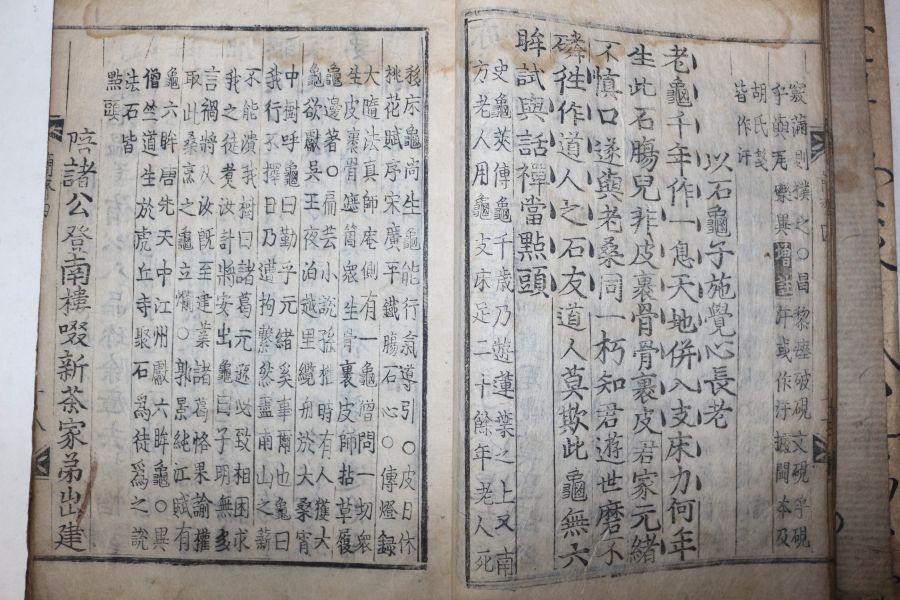 竅滿則撲之○昌黎瘞破硯文硯乎硯
乎瓦礫異增註汗或作汙據閩本及
胡氏箋
皆作汗
以石龜子施覺心長老
老龜千年作一息天地併入支床力何年
生此石膓兒非皮裹骨骨裹皮君家元緒
不慎口遂與老桑同一朽知君遊世磨不
磷徃作道人之石友道人莫欺此龜無六
眸試與話禪當點頭
史龜莢傳龜千歲乃遊蓮葉之上又南
方老人用龜支床足二十餘年老人死
移床龜尚生龜能行氣導引○皮日休
桃花賦序宋廣平鐵膓石心○傳燈錄
大隨法真師庵側有一龜僧問一切衆
生皮裹骨這箇衆生骨裹皮師拈草履
龜邊著○扁芸小說孫權時有人獲大
龜欲獻吳王夜泊越里纜舟於大桑宵
中樹呼龜曰勤乎元緒奚事爾也龜曰
我行不擇日乃遭拘縶然盡南山之薪
不能潰我樹曰諸葛元遜必致相困求
我之徒煑汝計將安出龜曰子明無多
言禍將及汝旣至建業諸葛恪果諭權
取此桑烹之龜立爛○郭景純江賦有
龜六眸唐先天中江州獻六眸龜○異
僧竺道生於虎丘寺聚石爲徒爲之說
法石皆
點頭
陪諸公登南樓啜新茶家弟出建